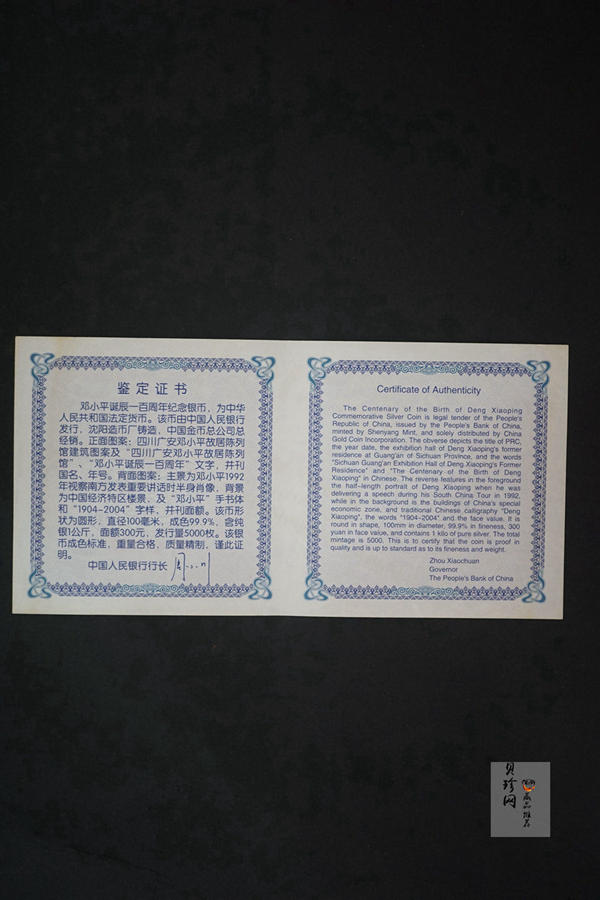 鉴定证书
邓小平诞辰一百周年纪念银币，为中华
人民共和国法定货币。该币由中国人民银行
发行，沈阳造币厂铸造，中国金币总公司总
经销。正面图案：四川广安邓小平故居陈列
馆建筑图案及“四川广安邓小平故居陈列
馆”、“邓小平诞辰一百周年”文字，并刊
国名、年号。背面图案：主景为邓小平1992
年视察南方发表重要讲话时半身肖像，背景
为中国经济特区楼景，及“邓小平”手书体
和“1904-2004”字样，并刊面额。该币形
状为圆形，直径100毫米，成色99.9%，含纯
银1公斤，面额300元，发行量5000枚。该银
币成色标准，重量合格，质量精制，谨此证
明。
中国人民银行行长
Certificate of Authenticity
The Centenary of the Birth of Deng Xiaoping
Commemorative Silver Coin is legal tender of the People's
Republic of China, issued by the People's Bank of China,
minted by Shenyang Mint, and solely distributed by China
Gold Coin Incorporation. The obverse depicts the title of PRC,
the year date, the exhibition hall of Deng Xiaoping's former
residence at Guang'an of Sichuan Province, and the words
"Sichuan Guang'an Exhibition Hall of Deng Xiaoping's Former
Residence" and "The Centenary of the Birth of Deng
Xiaoping" in Chinese. The reverse features in the foreground
the half-length portrait of Deng Xiaoping when he was
delivering a speech during his South China Tour in 1992,
while in the background is the buildings of China's special
economic zone, and traditional Chinese calligraphy "Deng
Xiaoping", the words "1904-2004" and the face value. It is
round in shape, 100mm in diameter, 99.9% in fineness, 300
yuan in face value, and contains 1 kilo of pure silver. The total
mintage is 5000. This is to certify that the coin is proof in
quality and is up to standard as to its fineness and weight.
Zhou Xiaochuan
Governor
The People's Bank of China
贝珍网